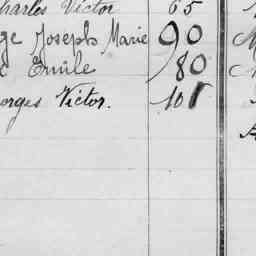 Charles Victor 65
ge Joseph Marie 90
c Emile 80
orges Victor. 101